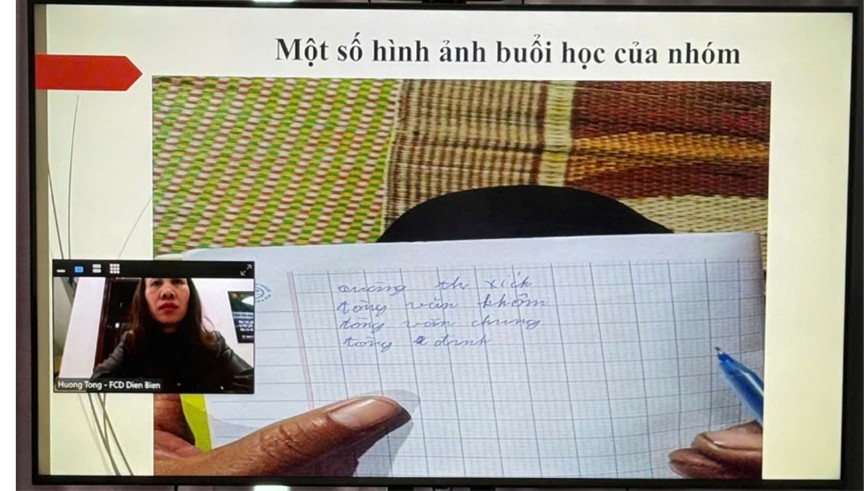 Một số hình ảnh buổi học của nhóm
quàng th xick
tòng văn khôm
tòng văn chung
tòng dinh
Huong Tong - FCD Dien Bien